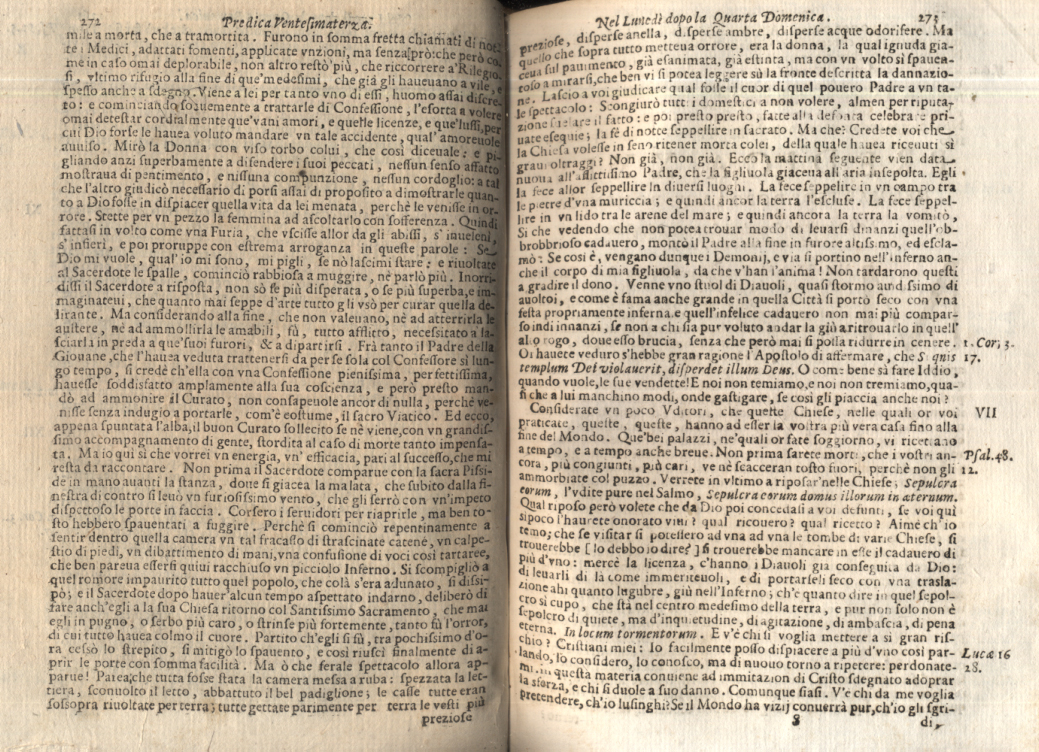 272 Predica Ventesimaterza.
mile a morta, che a tramortita. Furono in somma fretta chiamati di not-
te i Medici, adattati fomenti, applicate vnzioni, ma senza prò: che però co-
me in caso omai deplorabile, non altro restò più, che riccorrere a' Religio-
si, vltimo rifugio alla fine di que' medesimi, che già gli haueuano a vile, e
spesso anche a sdegno. Viene a lei per tanto vno di essi, huomo assai discre-
to: e cominciando soauemente a trattarle di Confessione, l'esorta a volere
omai detestar cordialmente que' vani amori, e quelle licenze, e que' lussi, per
cui Dio forse le hauea voluto mandare vn tale accidente, qual' amoreuole
auuiso. Mirò la Donna con viso torbo colui, che così diceuale: e pi-
gliando anzi superbamente a difendere i suoi peccati, nessun senso affatto
mostraua di pentimento, e nissuna compunzione, nessun cordoglio: a tal
che l'altro giudicò necessario di porsi assai di proposito a dimostrarle quan-
to a Dio fosse in dispiacer quella vita da lei menata, perchè le venisse in or-
rore. Stette per vn pezzo la femmina ad ascoltarlo con sofferenza. Quindi
fattasi in volto come vna Furia, che vscisse allor da gli abissi, s' inueleni,
s' infierì, e poi proruppe con estrema arroganza in queste parole: Se
Dio mi vuole, qual' io mi sono, mi pigli, se nò lascimi stare: e riuoltate
al Sacerdote le spalle, cominciò rabbiosa a muggire, nè parlò più. Inorri-
dissi il Sacerdote a risposta, non sò se più disperata, o se più superba, e im-
maginateui, che quanto mai seppe d'arte tutto gli vsò per curar quella de-
lirante. Ma considerando alla fine, che non valeuano, nè ad atterrirla le
austere, nè ad ammollirla le amabili, fù, tutto afflitto, necessitato a la-
sciarla in preda a que' suoi furori, & a dipartirsi. Frà tanto il Padre della
Giouane, che l'hauea veduta trattenersi da per se sola col Confessore sì lun-
go tempo, si credè ch'ella con vna Confessione pienissima, perfettissima,
hauesse soddisfatto amplamente alla sua coscienza, e però presto man-
dò ad ammonire il Curato, non consapeuole ancor di nulla, perchè ve-
nisse senza indugio a portarle, com'è costume, il sacro Viatico. Ed ecco,
appena spuntata l'alba, il buon Curato sollecito se nè viene, con vn grandis-
simo accompagnamento di gente, stordita al caso di morte tanto impensa-
ta. Ma io quì sì che vorrei vn energia, vn' efficacia, pari al successo, che mi
resta da raccontare. Non prima il Sacerdote comparue con la sacra Pissi-
de in mano auanti la stanza, doue si giacea la malata, che subito dalla fi-
nestra di contro si leuò vn furiosissimo vento, che gli serrò con vn' impeto
dispettoso le porte in faccia. Corsero i seruidori per riaprirle, ma ben to-
sto hebbero spauentati a fuggire. Perchè si cominciò repentinamente a
sentir dentro quella camera vn tal fracasso di strascinate catene, vn calpe-
stio di piedi, vn dibattimento di mani, vna confusione di voci così tartaree,
che ben pareua essersi quiui racchiuso vn picciolo Inferno. Si scompigliò a
quel romore impaurito tutto quel popolo, che colà s'era adunato, si dissi-
pò; e il Sacerdote dopo hauer'alcun tempo aspettato indarno, deliberò di
fare anch'egli a la sua Chiesa ritorno col Santissimo Sacramento, che mai
egli in pugno, o serbo più caro, o strinse più fortemente, tanto fù l'orror,
di cui tutto hauea colmo il cuore. Partito ch'egli si fù, tra pochissimo d'o-
ra cessò lo strepito, si mitigò lo spauento, e così riuscì finalmente di a-
prir le porte con somma facilità. Ma ò che ferale spettacolo allora ap-
parue! Parea, che tutta fosse stata la camera messa a ruba: spezzata la let-
tiera, sconuolto il letto, abbattuto il bel padiglione; le casse tutte eran
sossopra riuoltate per terra; tutte gettate parimente per terra le vesti più
preziose
Nel Lunedì dopo la Quarta Domenica. 273
preziose, disperse anella, disperse ambre, disperse acque odorifere. Ma
quello che sopra tutto metteua orrore, era la donna, la qual ignuda gia-
ceua sul pauimento, già esanimata, già estinta, ma con vn volto sì spauen-
toso a mirarsi, che ben vi si potea leggere sù la fronte descritta la dannazio-
ne. Lascio a voi giudicare qual fosse il cuor di quel pouero Padre a vn ta-
le spettacolo: Scongiurò tutti i domestici a non volere, almen per riputa-
zione fiatare il fatto: e poi presto presto, fatte alla defonta celebrare pri-
uate esequie; la fè di notte seppellire in sacrato. Ma che? Credete voi che
la Chiesa volesse in seno ritener morta colei, della quale hauea riceuuti sì
graui oltraggi? Non già, non già. Ecco la mattina seguente vien data
nuoua all'afflittissimo Padre, che la figliuola giaceua all'aria insepolta. Egli
la fece allor seppellire in diuersi luoghi. La fece seppelire in vn campo tra
le pietre d'vna muriccia; e quindi ancor la terra l'escluse. La fece seppel-
lire in vn lido tra le arene del mare; e quindi ancora la terra la vomitò,
Sì che vedendo che non potea trouar modo di leuarsi dinanzi quell'ob-
brobbrioso cadauero, montò il Padre alla fine in furore altissimo, ed escla-
mò: Se così è, vengano dunque i Demonij, e via si portino nell'inferno an-
che il corpo di mia figliuola, da che v'han l'anima! Non tardarono questi
a gradire il dono. Venne vno stuol di Diauoli, quasi stormo auidissimo di
auoltoi, e come è fama anche grande in quella Città si portò seco con vna
festa propriamente inferna. e quell'infelice cadauero non mai più compar-
so indi innanzi, se non a chi sia pur voluto andar la giù a ritrouarlo in quell'
alto rogo, doue esso brucia, senza che però mai si possa ridurre in cenere. 1. Cor; 3.
Oi hauete veduro s'hebbe gran ragione l'Apostolo di affermare, che Si quis 17.
templum Dei violauerit, disperdet illum Deus. O come bene sà fare Iddio,
quando vuole, le sue vendette! E noi non temiamo, e noi non tremiamo, qua-
si che a lui manchino modi, onde gastigare, se così gli piaccia anche noi?
Considerate vn poco Vditori, che queste Chiese, nelle quali or voi VII
praticate, queste, queste, hanno ad esser la vostra più vera casa fino alla
fine del Mondo. Que'bei palazzi, ne'quali or fate soggiorno, vi ricettano
a tempo, e a tempo anche breue. Non prima sarete morti, che i vostri an- Psal. 48.
cora, più congiunti, più cari, ve nè scacceran tosto fuori, perchè non gli 12.
ammorbiate col puzzo. Verrete in vltimo a riposar'nelle Chiese; Sepulcra
eorum, l'vdite pure nel Salmo, Sepulcra eorum domus illorum in æternum.
Qual riposo però volete che da Dio poi concedasi a voi defunti, se voi quì
sì poco l'haurete onorato viui? qual ricouero? qual ricetto? Aimè ch'io
temo; che se visitar si potessero ad vna ad vna le tombe di varie Chiese, si
trouerebbe [ lo debbo io dire? ] si trouerebbe mancare in esse il cadauero di
più d'vno: mercè la licenza, c'hanno i Diauoli già conseguita da Dio:
di leuarli di là come immeriteuoli, e di portarseli seco con vna trasla-
zione ahi quanto lugubre, giù nell'Inferno; ch'è quanto dire in quel sepol-
cro sì cupo, che stà nel centro medesimo della terra, e pur non solo non è
sepolcro di quiete, ma d'inquietudine, di agitazione, di ambascia, di pena
eterna. In locum tormentorum. E v'è chi si voglia mettere a sì gran ris-
chio? Cristiani miei: Io facilmente posso dispiacere a più d'vno così par- Lucæ 16
lando, lo considero, lo conosco, ma di nuouo torno a ripetere: perdonate- 28.
mi. in questa materia conuiene ad immitazion di Cristo sdegnato adoprar
la sforza, e chi si duole a suo danno. Comunque siasi. V'è chi da me voglia
pretendere, ch'io lusinghi? Se il Mondo ha vizij conuerrà pur, ch'io gli sgri-
S di,